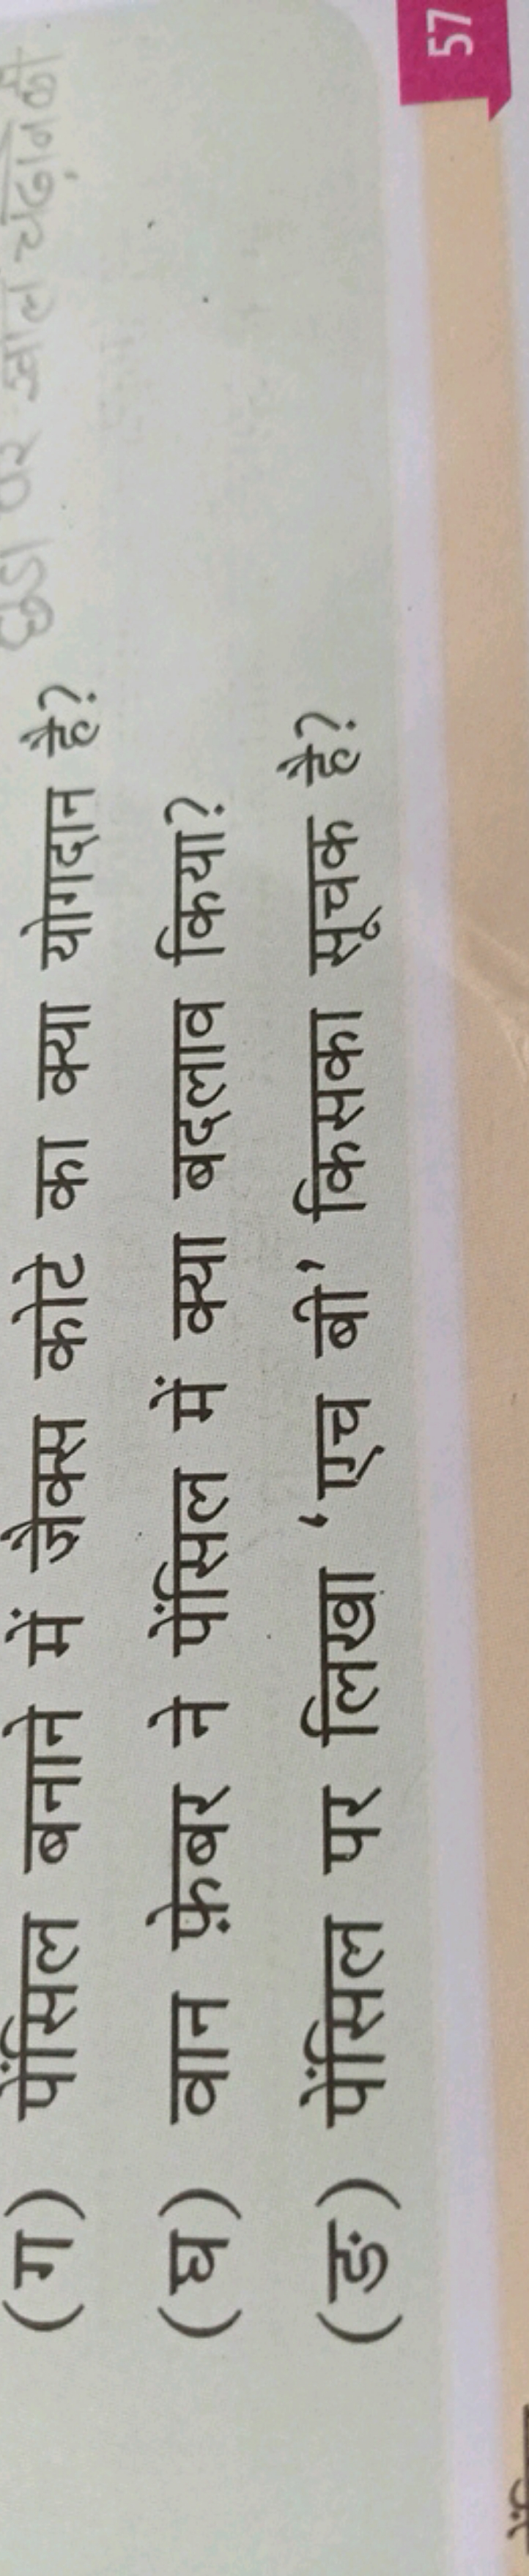 (ग) पेंसिल बनाने में जैक्स कोटे का क्या योगदान है?
(घ) वान फ़ेबर ने पेंसिल में क्या बदलाव किया?
(ङ) पेंसिल पर लिखा ‘एच बी’ किसका सूचक है?
57